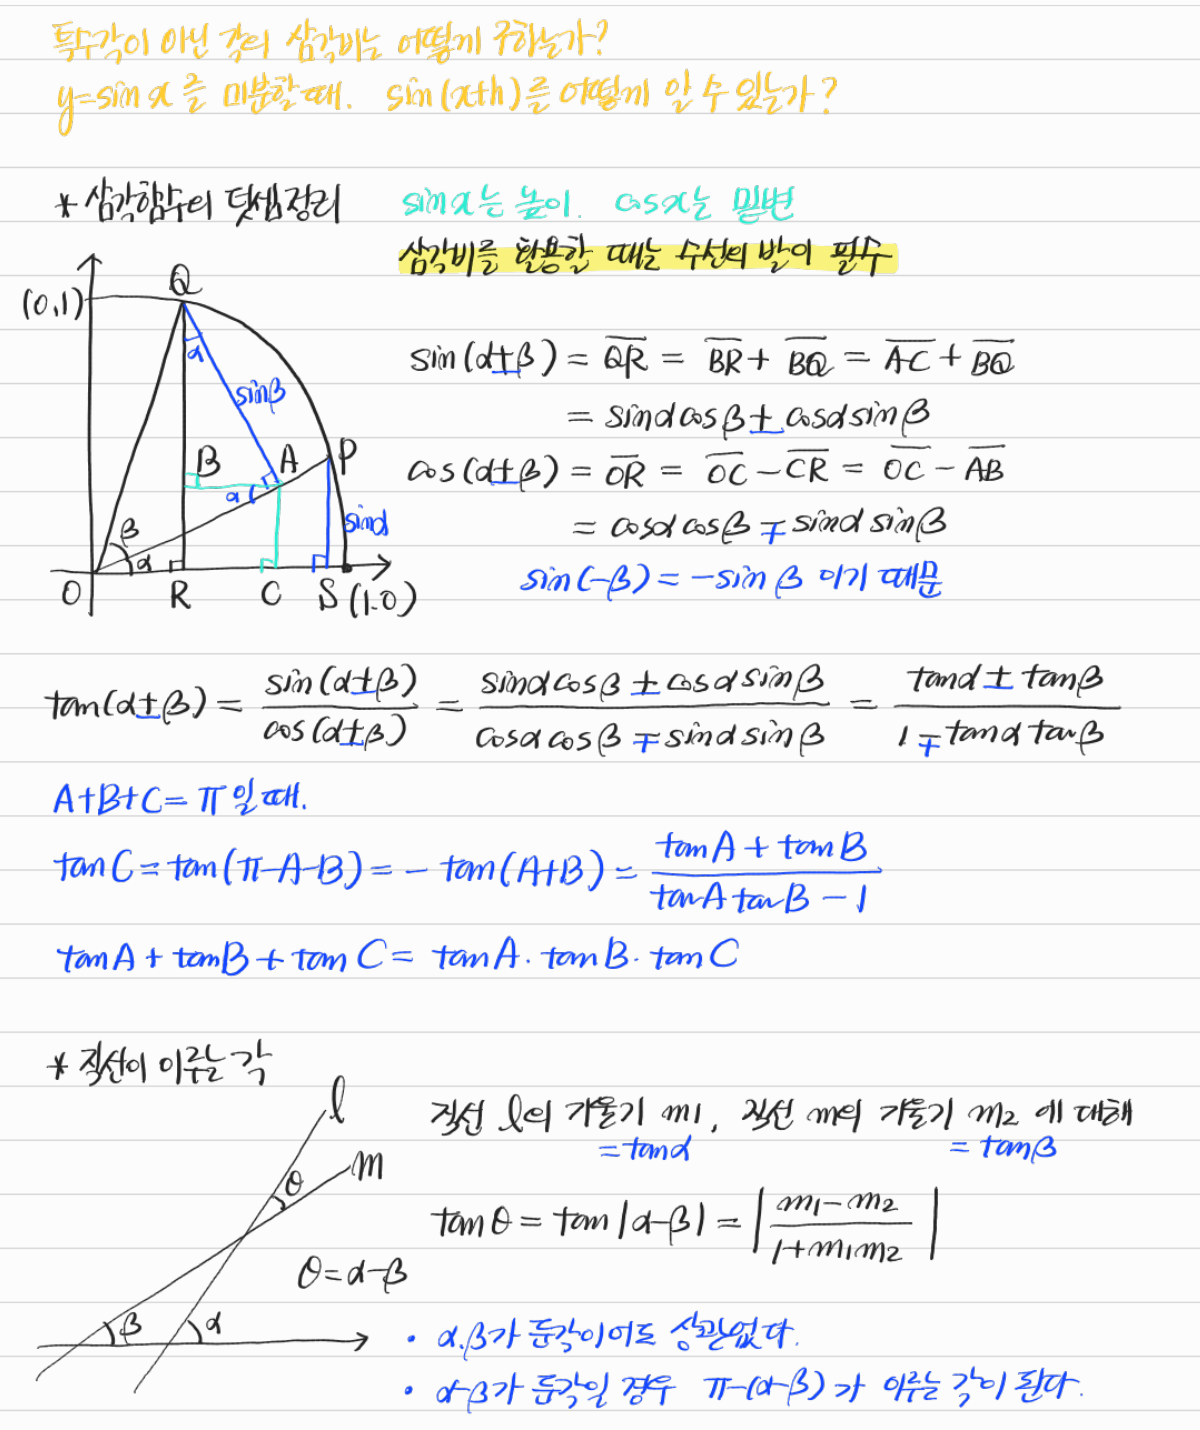 특수각이 아닌 각의 삼각비는 어떻게 구하는가?
y=sin x 를 미분할 때. sin(x+h)를 어떻게 알 수 있는가?
* 삼각함수의 덧셈정리 sin x는 높이. cos x는 밑변
삼각비를 활용할 때는 수선의 발이 필수
(0,1) Q
α
sinβ
B A P
α
sinα
β α
O R C S (1.0)
sin(α±β) = Q̅R̅ = B̅R̅ + B̅Q̅ = A̅C̅ + B̅Q̅
= sinα cosβ ± cosα sinβ
cos(α±β) = O̅R̅ = O̅C̅ − C̅R̅ = O̅C̅ − A̅B̅
= cosα cosβ ∓ sinα sinβ
sin(-β) = -sin β 이기 때문
tan(α±β) = sin(α±β)/cos(α±β) = (sinα cosβ ± cosα sinβ)/(cosα cosβ ∓ sinα sinβ) = (tanα ± tanβ)/(1 ∓ tanα tanβ)
A+B+C = π 일 때.
tan C = tan(π-A-B) = - tan(A+B) = (tanA + tanB)/(tanA tanB − 1)
tanA + tanB + tan C = tanA · tanB · tan C
* 직선이 이루는 각
l
m
θ
θ = α-β
β α
직선 l의 기울기 m1, 직선 m의 기울기 m2 에 대해
= tanα = tanβ
tan θ = tan |α-β| = |(m1 − m2)/(1+m1m2)|
· α.β가 둔각이어도 상관없다.
· α-β가 둔각일 경우 π-(α-β) 가 이루는 각이 된다.